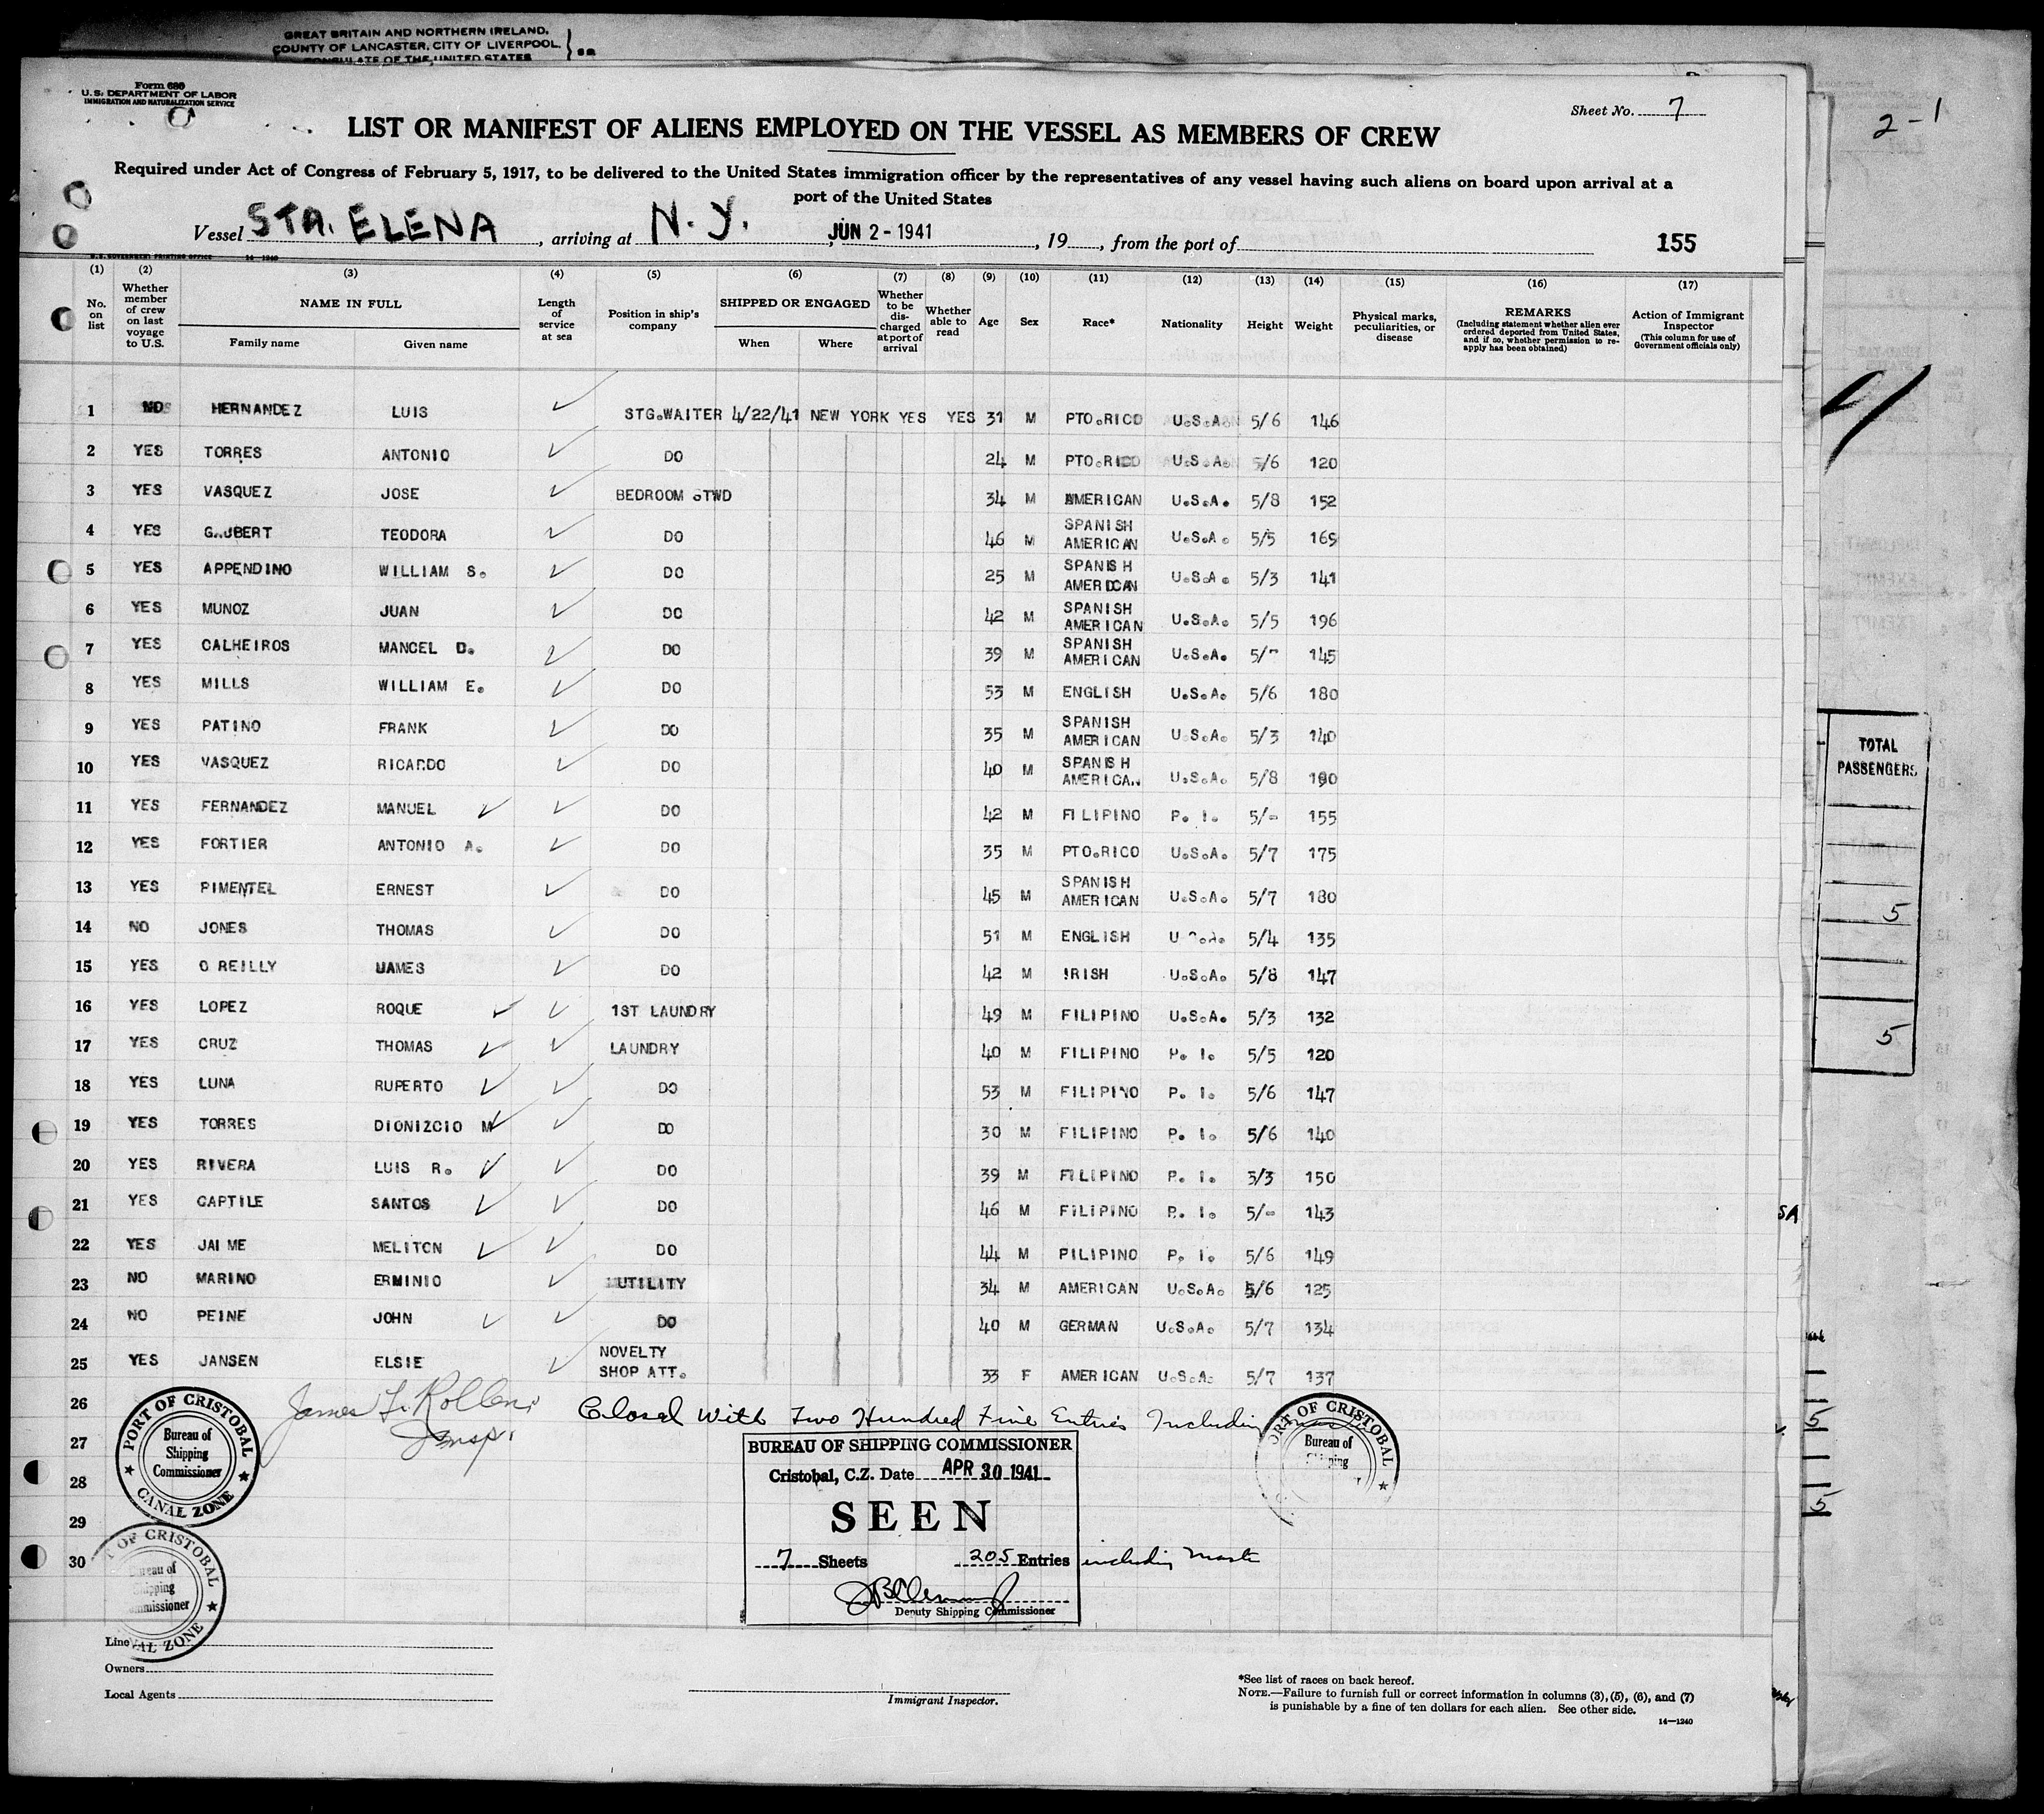 GREAT BRITAIN AND NORTHERN IRELAND,
COUNTY OF LANCASTER, CITY OF LIVERPOOL, } SS
CONSULATE OF THE UNITED STATES
Form 680
U.S. DEPARTMENT OF LABOR
IMMIGRATION AND NATURALIZATION SERVICE
Sheet No. 7
2-1
LIST OR MANIFEST OF ALIENS EMPLOYED ON THE VESSEL AS MEMBERS OF CREW
Required under Act of Congress of February 5, 1917, to be delivered to the United States immigration officer by the representatives of any vessel having such aliens on board upon arrival at a
port of the United States
Vessel STA. ELENA, arriving at N.Y. JUN 2 - 1941, 19, from the port of 155
U.S. GOVERNMENT PRINTING OFFICE 14-1240
(1) (2) (3) (4) (5) (6) (7) (8) (9) (10) (11) (12) (13) (14) (15) (16) (17)
No. on list Whether member of crew on last voyage to U.S. NAME IN FULL Family name Given name Length of service at sea Position in ship's company SHIPPED OR ENGAGED When Where Whether to be discharged at port of arrival Whether able to read Age Sex Race* Nationality Height Weight Physical marks, peculiarities, or disease REMARKS (Including statement whether alien ever ordered deported from United States, and if so, whether permission to reapply has been obtained) Action of Immigrant Inspector (This column for use of Government officials only)
1 NO HERNANDEZ LUIS ✓ STG.WAITER 4/22/41 NEW YORK YES YES 31 M PTO.RICO U.S.A. 5/6 146
2 YES TORRES ANTONIO ✓ DO 24 M PTO.RICO U.S.A. 5/6 120
3 YES VASQUEZ JOSE ✓ BEDROOM STWD 34 M AMERICAN U.S.A. 5/8 152
4 YES TEODORA ✓ DO 46 M SPANISH AMERICAN U.S.A. 5/5 165
5 YES APPENDINO WILLIAM S. ✓ DO 25 M SPANISH AMERICAN U.S.A. 5/3 141
6 YES MUNOZ JUAN ✓ DO 42 M SPANISH AMERICAN U.S.A. 5/5 196
7 YES CALHEIROS MANCEL D. ✓ DO 39 M SPANISH AMERICAN U.S.A. 5/- 145
8 YES MILLS WILLIAM E. ✓ DO 53 M ENGLISH U.S.A. 5/6 180
9 YES PATINO FRANK ✓ DO 35 M SPANISH AMERICAN U.S.A. 5/3 140
10 YES VASQUEZ RICARDO ✓ DO 40 M SPANISH AMERICAN U.S.A. 5/8 190
11 YES FERNANDEZ MANUEL ✓ ✓ DO 42 M FILIPINO P. I. 5/- 155
12 YES FORTIER ANTONIO A. ✓ DO 35 M PTO.RICO U.S.A. 5/7 175
13 YES PIMENTEL ERNEST ✓ DO 45 M SPANISH AMERICAN U.S.A. 5/7 180
14 NO JONES THOMAS ✓ DO 51 M ENGLISH U.S.A. 5/4 135
15 YES O REILLY JAMES ✓ DO 42 M IRISH U.S.A. 5/8 147
16 YES LOPEZ ROQUE ✓ ✓ 1ST LAUNDRY 49 M FILIPINO U.S.A. 5/3 132
17 YES CRUZ THOMAS ✓ ✓ LAUNDRY 40 M FILIPINO P. I. 5/5 120
18 YES LUNA RUPERTO ✓ ✓ DO 53 M FILIPINO P. I. 5/6 147
19 YES TORRES DIONIZCIO M ✓ ✓ DO 30 M FILIPINO P. I. 5/6 140
20 YES RIVERA LUIS R. ✓ ✓ DO 39 M FILIPINO P. I. 5/3 150
21 YES CAPTILE SANTOS ✓ ✓ DO 46 M FILIPINO P. I. 5/- 143
22 YES JAIME MELITON ✓ ✓ DO 44 M PILIPINO P. I. 5/6 149
23 NO MARINO ERMINIO ✓ UTILITY 34 M AMERICAN U.S.A. 5/6 125
24 NO PEINE JOHN ✓ ✓ DO 40 M GERMAN U.S.A. 5/7 134
25 YES JANSEN ELSIE ✓ NOVELTY SHOP ATT. 33 F AMERICAN U.S.A. 5/7 137
26
27
28
29
30
Closed With Two Hundred Five Entries Including
PORT OF CRISTOBAL
Bureau of
Shipping
Commissioner
CANAL ZONE
James Insp.
BUREAU OF SHIPPING COMMISSIONER
Cristobal, C.Z. Date APR 30 1941
SEEN
7 Sheets 205 Entries including Master
Deputy Shipping Commissioner
PORT OF CRISTOBAL
Bureau of
Shipping
T OF CRISTOBAL
Bureau of
Shipping
Commissioner
AL ZONE
Line
Owners
Local Agents
Immigrant Inspector.
*See list of races on back hereof.
NOTE.—Failure to furnish full or correct information in columns (3), (5), (6), and (7)
is punishable by a fine of ten dollars for each alien. See other side.
14—1240
TOTAL
PASSENGERS
5
5
SA
5
5